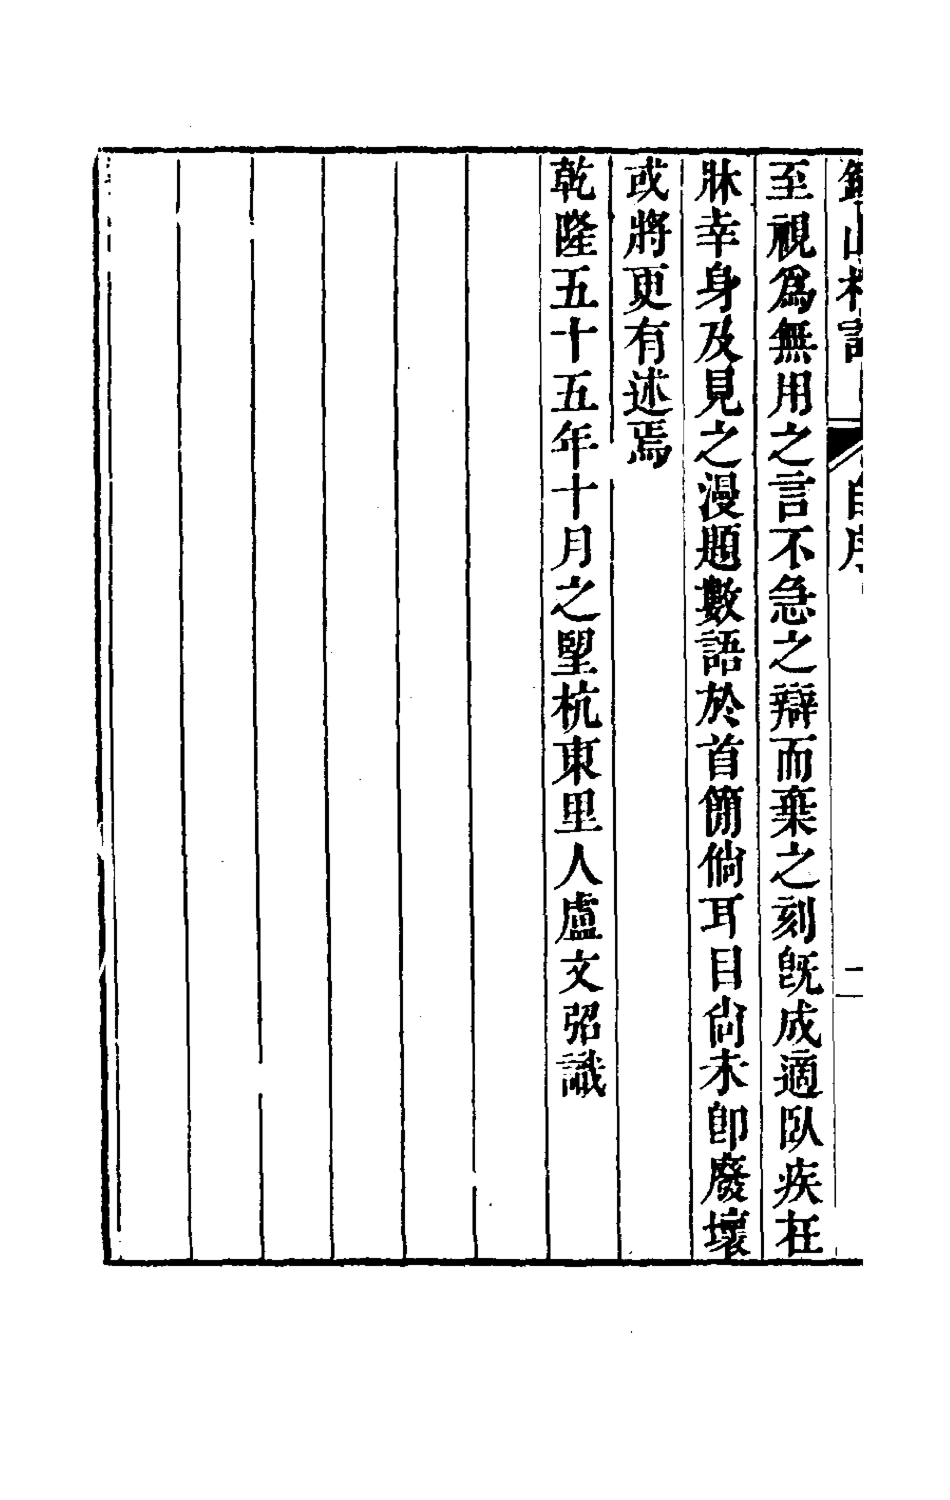 鍾山札記 自序 二
至視爲無用之言不急之辯而棄之刻旣成適臥疾在
牀幸身及見之漫題數語於首簡倘耳目尙未卽廢壞
或將更有述焉
乾隆五十五年十月之望杭東里人盧文弨識